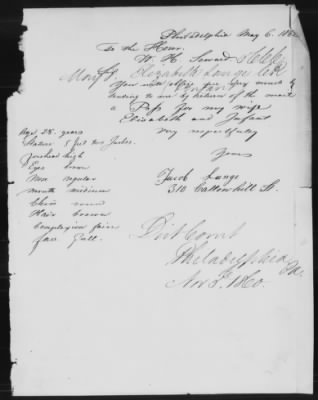 Philadelphia May 6. 186
To the Honr.
W. H. Seward
Elizabeth Lange
You will oblige me very much by
sending to me by return of the mail
a Pass for my wife
Elizabeth and Infant
Very respectfully
Yours
Jacob Lange
310 Callowhill St.
Age 28. years
Stature 5 feet two Inches.
Forehead high
Eyes brown
Nose regular
mouth medium
Chin round
Hair brown
Complexion fair
face full.
Dist Court
Philadelphia
Pa.
Nov 3d. 1860.